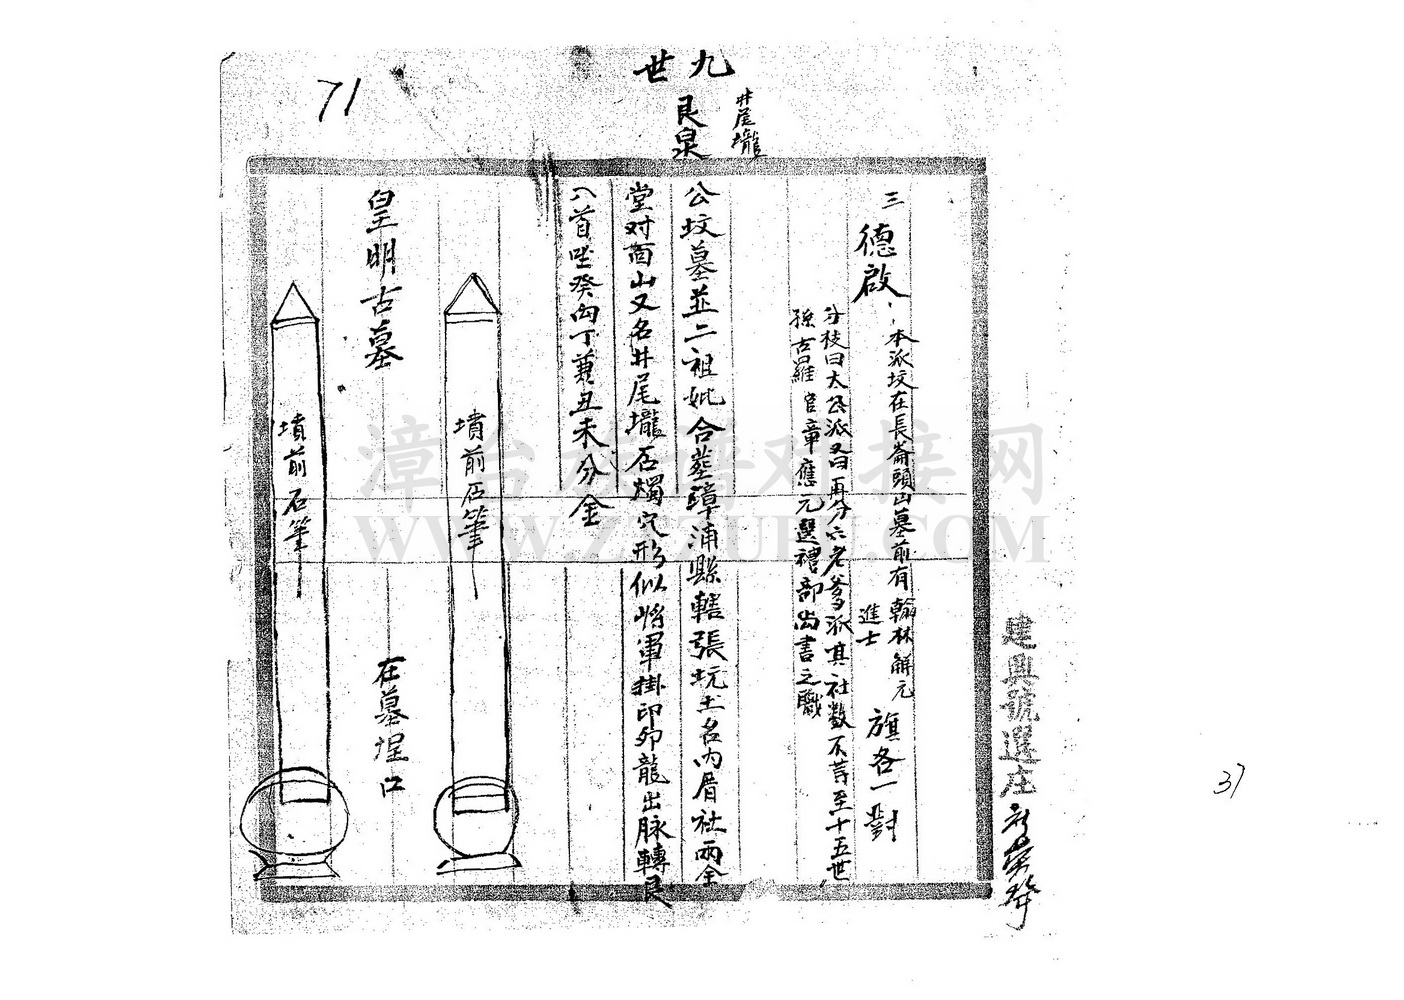 71
九世
井尾壠
艮泉
三 德啟
本派坟在長崙頭山墓前有翰林解元
進士
旗各一對
分枝曰大公派又曰再分六老爹派真社数不荨至十五世
孫古羅官章應元選禮部尚書之職
公坟墓並二祖妣合塟漳浦縣轄張坑土名內厝社兩全
堂对面山又名井尾壠石燭穴形似將軍掛印卯龍出脉轉艮
入首坐癸向丁兼丑未分金
墳前石筆
皇明古墓
在墓埕口
墳前石筆
建興號選庄
37
漳台族谱对接网
WWW.ZTZUPU.COM